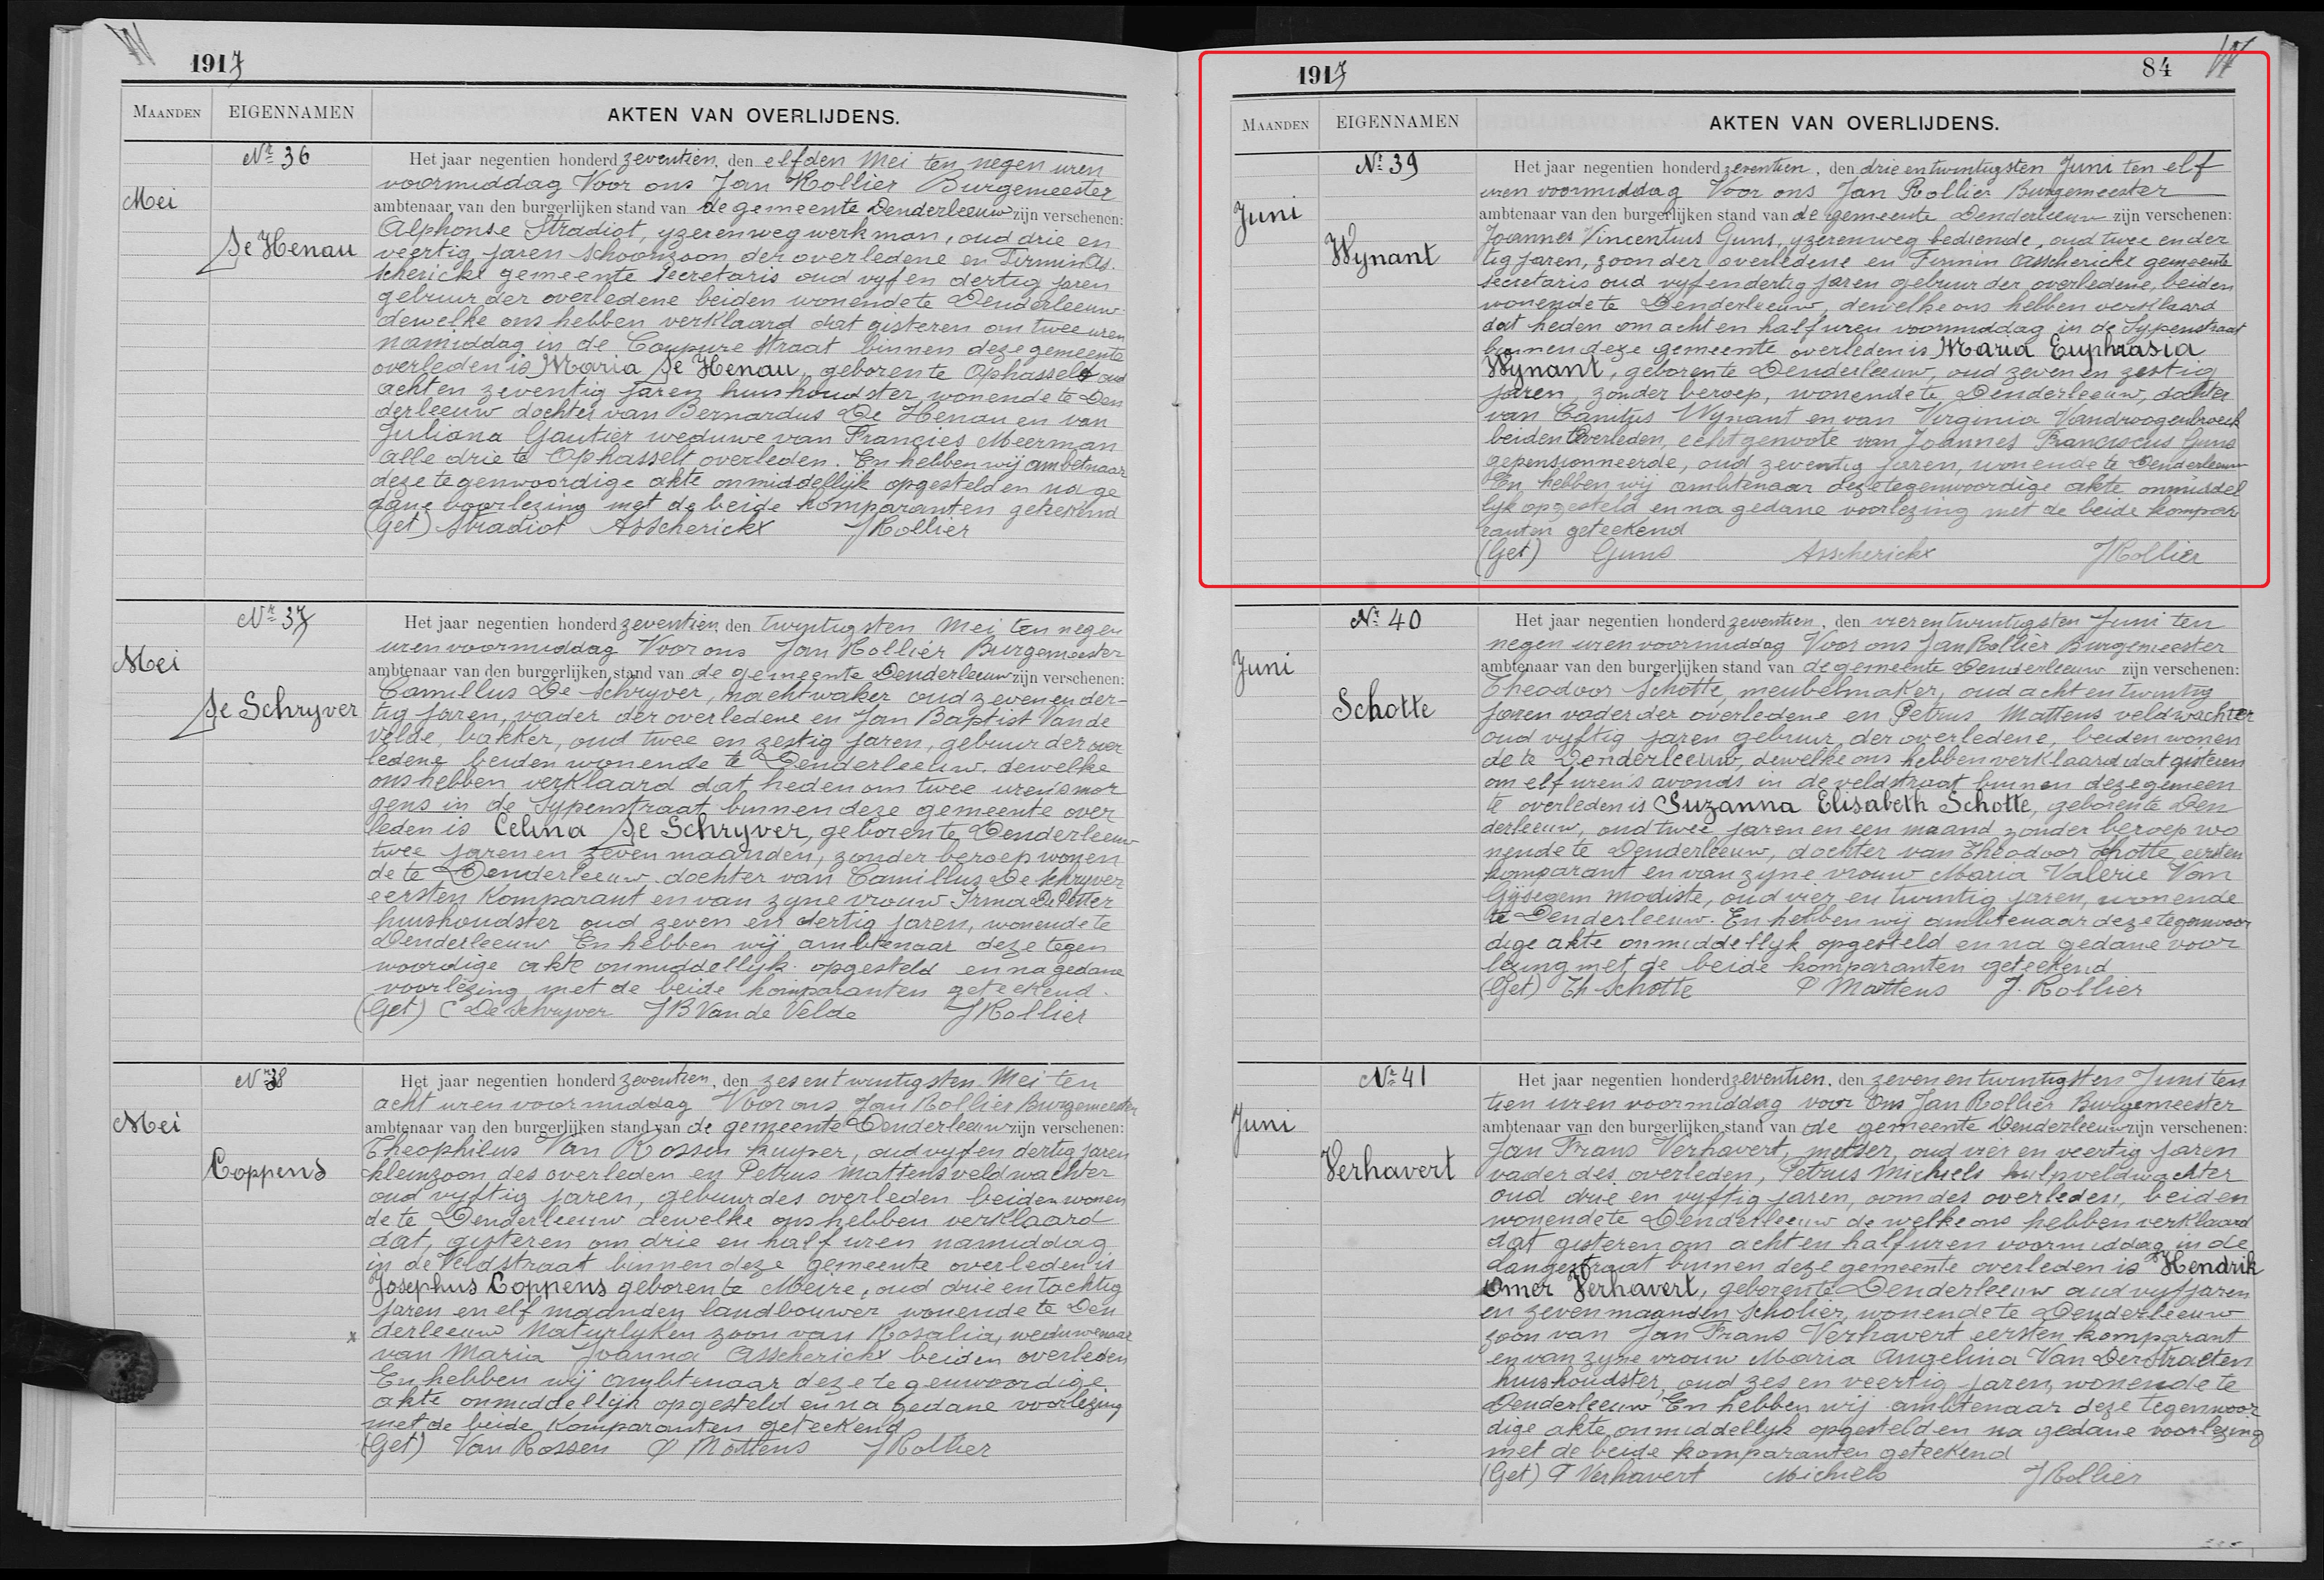 1917
MAANDEN
EIGENNAMEN
AKTEN VAN OVERLIJDENS.
Nr 36
Mei
De Henau
Het jaar negentien honderd zeventien, den elfden Mei ten negen uren
voormiddag Voor ons Jan Rollier Burgemeester
ambtenaar van den burgerlijken stand van de gemeente Denderleeuw zijn verschenen:
Alphonse Stradiot, yzerenwegwerkman, oud drie en
veertig jaren schoonzoon der overledene en Firmin As-
scherickx gemeente secretaris oud vyf en dertig jaren
gebuur der overledene beiden wonende te Denderleeuw.
dewelke ons hebben verklaard dat gisteren om twee uren
namiddag in de Coupure straat binnen deze gemeente
overleden is Maria De Henau, geboren te Ophasselt oud
acht en zeventig jaren huishoudster, wonende te Den
derleeuw dochter van Bernardus De Henau en van
Juliana Gautier weduwe van Francies Meerman
alle drie te Ophasselt overleden. En hebben wij ambtenaar
deze tegenwoordige akte onmiddellijk opgesteld en na ge
dane voorlezing met de beide komparanten geteekend
(Get) Stradiot Asscherickx JRollier
Nr 37
Mei
De Schryver
Het jaar negentien honderd zeventien, den twintigsten Mei ten negen
uren voormiddag Voor ons Jan Rollier Burgemeester
ambtenaar van den burgerlijken stand van de gemeente Denderleeuw zijn verschenen:
Camillus De Schryver, nachtwaker oud zeven en der-
tig jaren, vader der overledene en Jan Baptist Van de
Velde, bakker, oud twee en zestig jaren, gebuur der over
ledene beiden wonende te Denderleeuw. dewelke
ons hebben verklaard dat heden om twee uren 's mor
gens in de Sypenstraat binnen deze gemeente over
leden is Celina De Schryver, geboren te Denderleeuw
twee jaren en zeven maanden, zonder beroep wonen
de te Denderleeuw, dochter van Camillus De Schryver
eersten Komparant en van zyne vrouw Irma De Petter
huishoudster oud zeven en dertig jaren, wonende te
Denderleeuw En hebben wij ambtenaar deze tegen
woordige akte onmiddellyk opgesteld en na gedane
voorlezing met de beide komparanten geteekend.
(Get) C De Schryver JB Van de Velde JRollier
Nr 38
Mei
Coppens
Het jaar negentien honderd zeventien, den zes en twintigsten Mei ten
acht uren voormiddag Voor ons Jan Rollier Burgemeester
ambtenaar van den burgerlijken stand van de gemeente Denderleeuw zijn verschenen:
Theophilus Van Rossen kuyper, oud vyf en dertig jaren
kleinzoon des overleden en Petrus Mattens veldwachter
oud vyftig jaren, gebuur des overleden beiden wonen
de te Denderleeuw dewelke ons hebben verklaard
dat, gisteren om drie en half uren namiddag
in de Veldstraat binnen deze gemeente overleden is
Josephus Coppens geboren te Meire, oud drie en tachtig
jaren en elf maanden landbouwer wonende te Den
x derleeuw Natuurlyken zoon van Rosalia, weduwenaar
van Maria Joanna Asscherickx beiden overleden
En hebben wij ambtenaar deze tegenwoordige
akte onmiddellijk opgesteld en na gedane voorlezing
met de beide Komparanten geteekend
(Get) Van Rossen P Mattens JRollier
1917
84
MAANDEN
EIGENNAMEN
AKTEN VAN OVERLIJDENS.
Nr 39
Juni
Wynant
Het jaar negentien honderd zeventien, den drie en twintigsten Juni ten elf
uren voormiddag Voor ons Jan Rollier Burgemeester
ambtenaar van den burgerlijken stand van de gemeente Denderleeuw zijn verschenen:
Joannes Vincentius Guns, yzerenweg bediende, oud twee en der
tig jaren, zoon der overledene en Firmin Asscherickx gemeente
secretaris oud vyf en dertig jaren gebuur der overledene, beiden
wonende te Denderleeuw, dewelke ons hebben verklaard
dat heden om acht en half uren voormiddag in de Sypenstraat
binnen deze gemeente overleden is Maria Euphrasia
Wynant, geboren te Denderleeuw, oud zeven en zestig
jaren, zonder beroep, wonende te Denderleeuw, dochter
van Canutus Wynant en van Virginia Vandroogenbroeck
beiden overleden, echtgenoote van Joannes Franciscus Guns
gepensionneerde, oud zeventig jaren, wonende te Denderleeuw
En hebben wij ambtenaar deze tegenwoordige akte onmiddel
lyk opgesteld en na gedane voorlezing met de beide kompar
ranten geteekend
(Get) Guns Asscherickx JRollier
Nr 40
Juni
Schotte
Het jaar negentien honderd zeventien, den vier en twintigsten Juni ten
negen uren voormiddag Voor ons Jan Rollier Burgemeester
ambtenaar van den burgerlijken stand van de gemeente Denderleeuw zijn verschenen:
Theodoor Schotte, meubelmaker, oud acht en twintig
jaren vader der overledene en Petrus Mattens veldwachter
oud vyftig jaren gebuur der overledene, beiden wonen
de te Denderleeuw, dewelke ons hebben verklaard dat gisteren
om elf uren 's avonds in de veldstraat binnen deze gemeen
te overleden is Suzanna Elisabeth Schotte, geboren te Den
derleeuw, oud twee jaren en een maand zonder beroep wo
nende te Denderleeuw, dochter van Theodoor Schotte eersten
komparant en van zyne vrouw Maria Valerie Van
Gijsegem modiste, oud vier en twintig jaren, wonende
te Denderleeuw. En hebben wij ambtenaar deze tegenwoor
dige akte onmiddellyk opgesteld en na gedane voor
lezing met de beide komparanten geteekend
(Get) Th Schotte P Mattens J. Rollier
Nr 41
Juni
Verhavert
Het jaar negentien honderd zeventien, den zeven en twintigsten Juni ten
tien uren voormiddag voor Ons Jan Rollier Burgemeester
ambtenaar van den burgerlijken stand van de gemeente Denderleeuw zijn verschenen:
Jan Frans Verhavert, metser, oud vier en veertig jaren
vader des overleden, Petrus Michiels hulpveldwachter
oud drie en vyftig jaren, oom des overleden, beiden
wonende te Denderleeuw dewelke ons hebben verklaard
dat gisteren om acht en half uren voormiddag in de
Langestraat binnen deze gemeente overleden is Hendrik
Omer Verhavert, geboren te Denderleeuw oud vyf jaren
en zeven maanden Scholier, wonende te Denderleeuw
zoon van Jan Frans Verhavert eersten komparant
en van zyne vrouw Maria Angelina Van Der Straeten
huishoudster, oud zes en veertig jaren, wonende te
Denderleeuw En hebben wij ambtenaar deze tegenwoor
dige akte onmiddellyk opgesteld en na gedane voorlezing
met de beide komparanten geteekend
(Get) F Verhavert Michiels JRollier